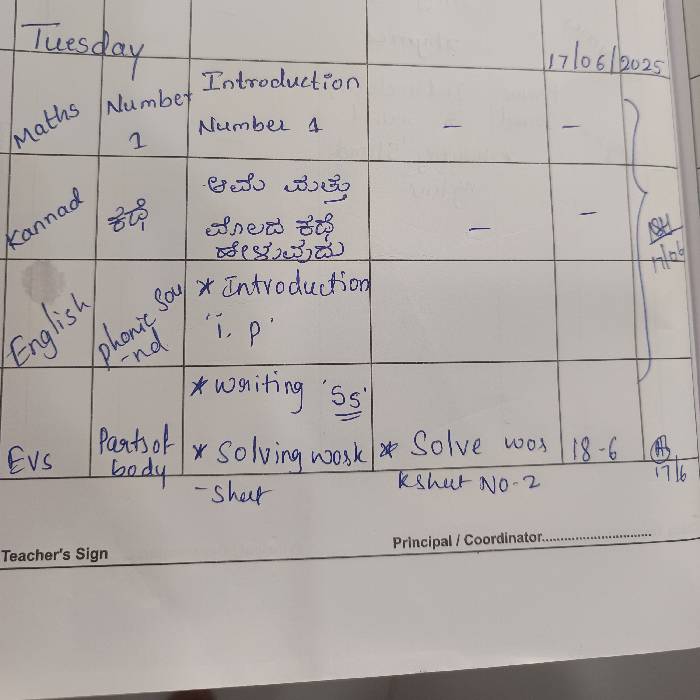 Tuesday
17/06/2025
Maths
Number
1
Introduction
Number 1
–
–
Kannad
ಕಥೆ
ಆಮೆ ಮತ್ತು
ಮೊಲದ ಕಥೆ
ಹೇಳುವುದು
–
–
17/06
English
phonic Sou
-nd
* Introduction
"i, p"
* Writing 'Ss'
EVS
Parts of
body
* Solving work
-sheet
* Solve wor
ksheet NO-2
18-6
17/6
Teacher's Sign
Principal / Coordinator..............................